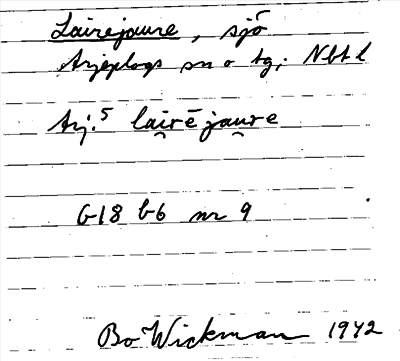 Lairejaure, sjö
Arjeplogs sn o tg; Nbtl
Arj.⁵ lai̯rējau̯re
G18 b6 nr 9
Bo Wickman 1942